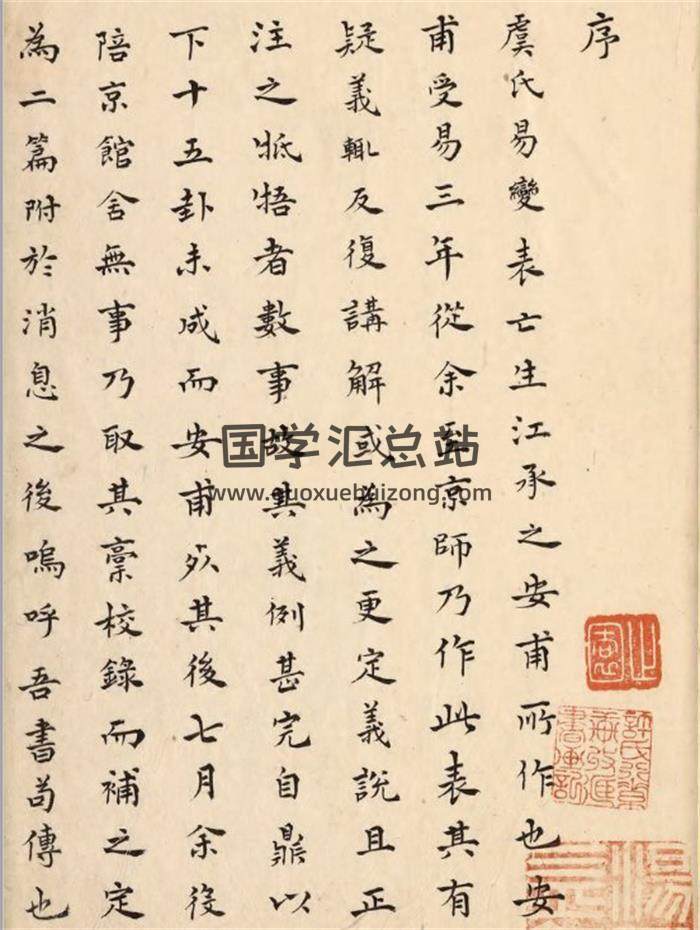 序
虞氏易變表亡生江承之安甫所作也安
甫受易三年從余至京師乃作此表其有
疑義輒反復講解或為之更定義說且正
注之牴牾者數事故其義例甚完自鼎以
下十五卦未成而安甫歿其後七月余後
陪京館舍無事乃取其稾校錄而補之定
為二篇附於消息之後嗚呼吾書苟傳也
国学汇总站
www.guoxuehuizong.com